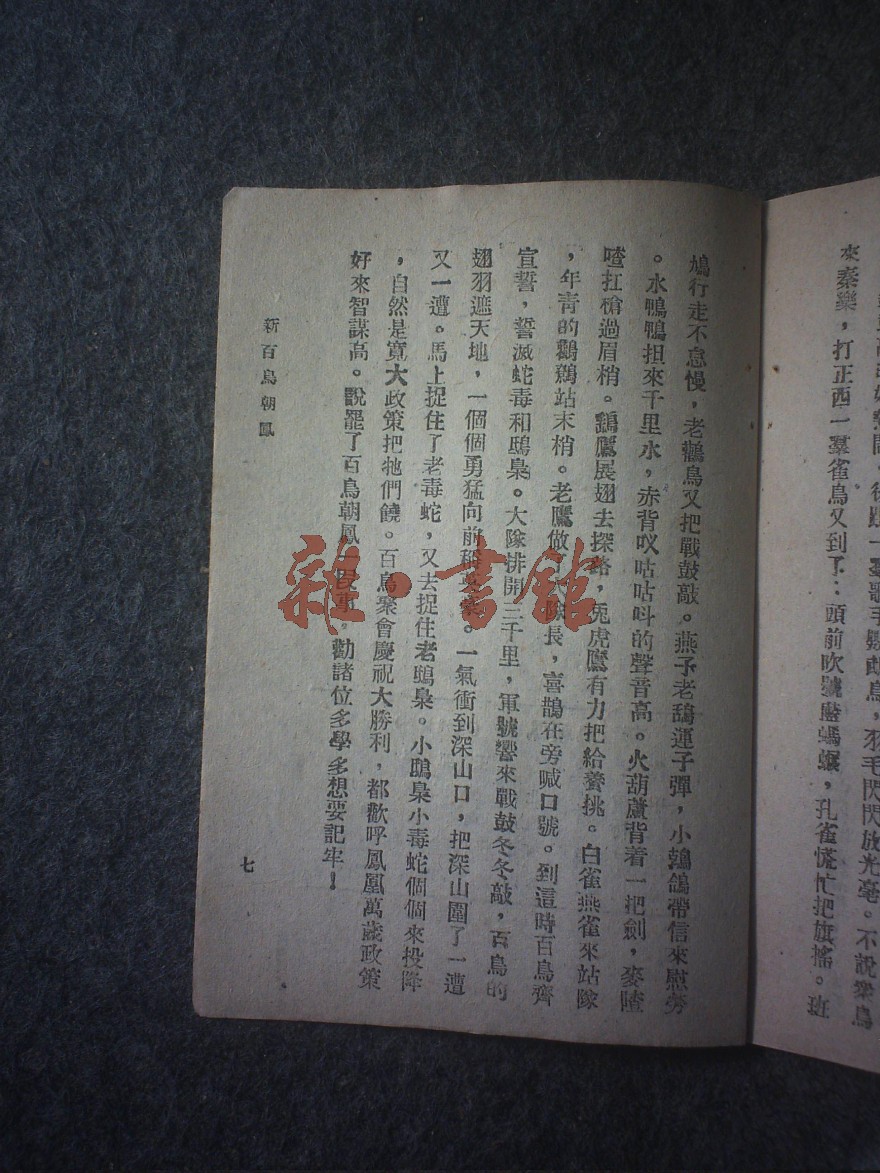 來奏樂，打正西一羣雀鳥又到了：頭前吹號藍螞螂，孔雀慌忙把旗搖。班
鳩行走不怠慢，老鸛鳥又把戰鼓敲。燕子老鴰運子彈，小鵓鴿帶信來慰勞
。水鴨鴨担來千里水，赤背叹咕咕呌的聲音高。火葫蘆背着一把劍，麥喳
喳扛槍過眉梢。鷂鷹展翅去探路，兎虎鷹有力把給養挑。白雀燕雀來站隊
，年青的鵪鶉站末梢。老鷹做長，喜鵲在旁喊口號。到這時百鳥齊
宣誓，誓滅蛇毒和鴟梟。大隊排開三千里，軍號響來戰鼓冬冬敲，百鳥的
翅羽遮天地，一個個勇猛向前稱。一氣衝到深山口，把深山圍了一遭
又一遭。馬上捉住了老毒蛇，又去捉住老鴟梟。小鴟梟小毒蛇個個來投降
，自然是寬大政策把牠們饒。百鳥聚會慶祝大勝利，都歡呼鳳凰萬歲政策
好來智謀高。說罷了百鳥朝鳳一段事，勸諸位多學多想要記牢！
新百鳥朝鳳
七
雜·書館